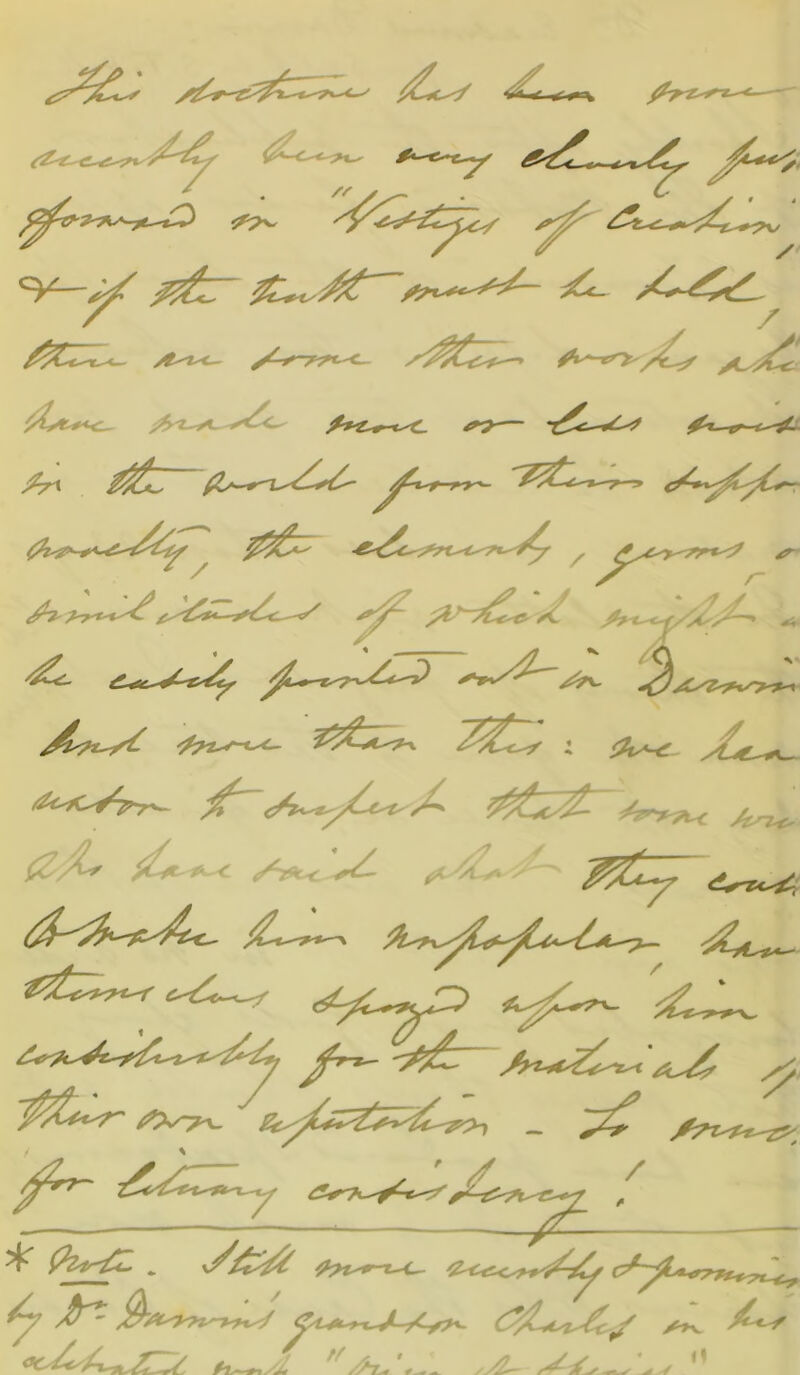 This doctrine has been more
recently been very cleverly put
forward in "Vestiges of Creation"
& if the truth must be told,
there are some other works wh
have made more or less nois
in the world from their suppo
novelty, the elements, germs o
similitudes of which might
be easily pointed out in Darwin
And more than this: we hav
reason to suspect that some
who have said what they coul
to make him unpopular, have
themselves sponged upon him
considerably for the materials of
their own reputation - So much
for literary consistency!
* Note. Still more recently &
by Dr Darwin's grandson Charles in his
celebrated work "Origin of Species"